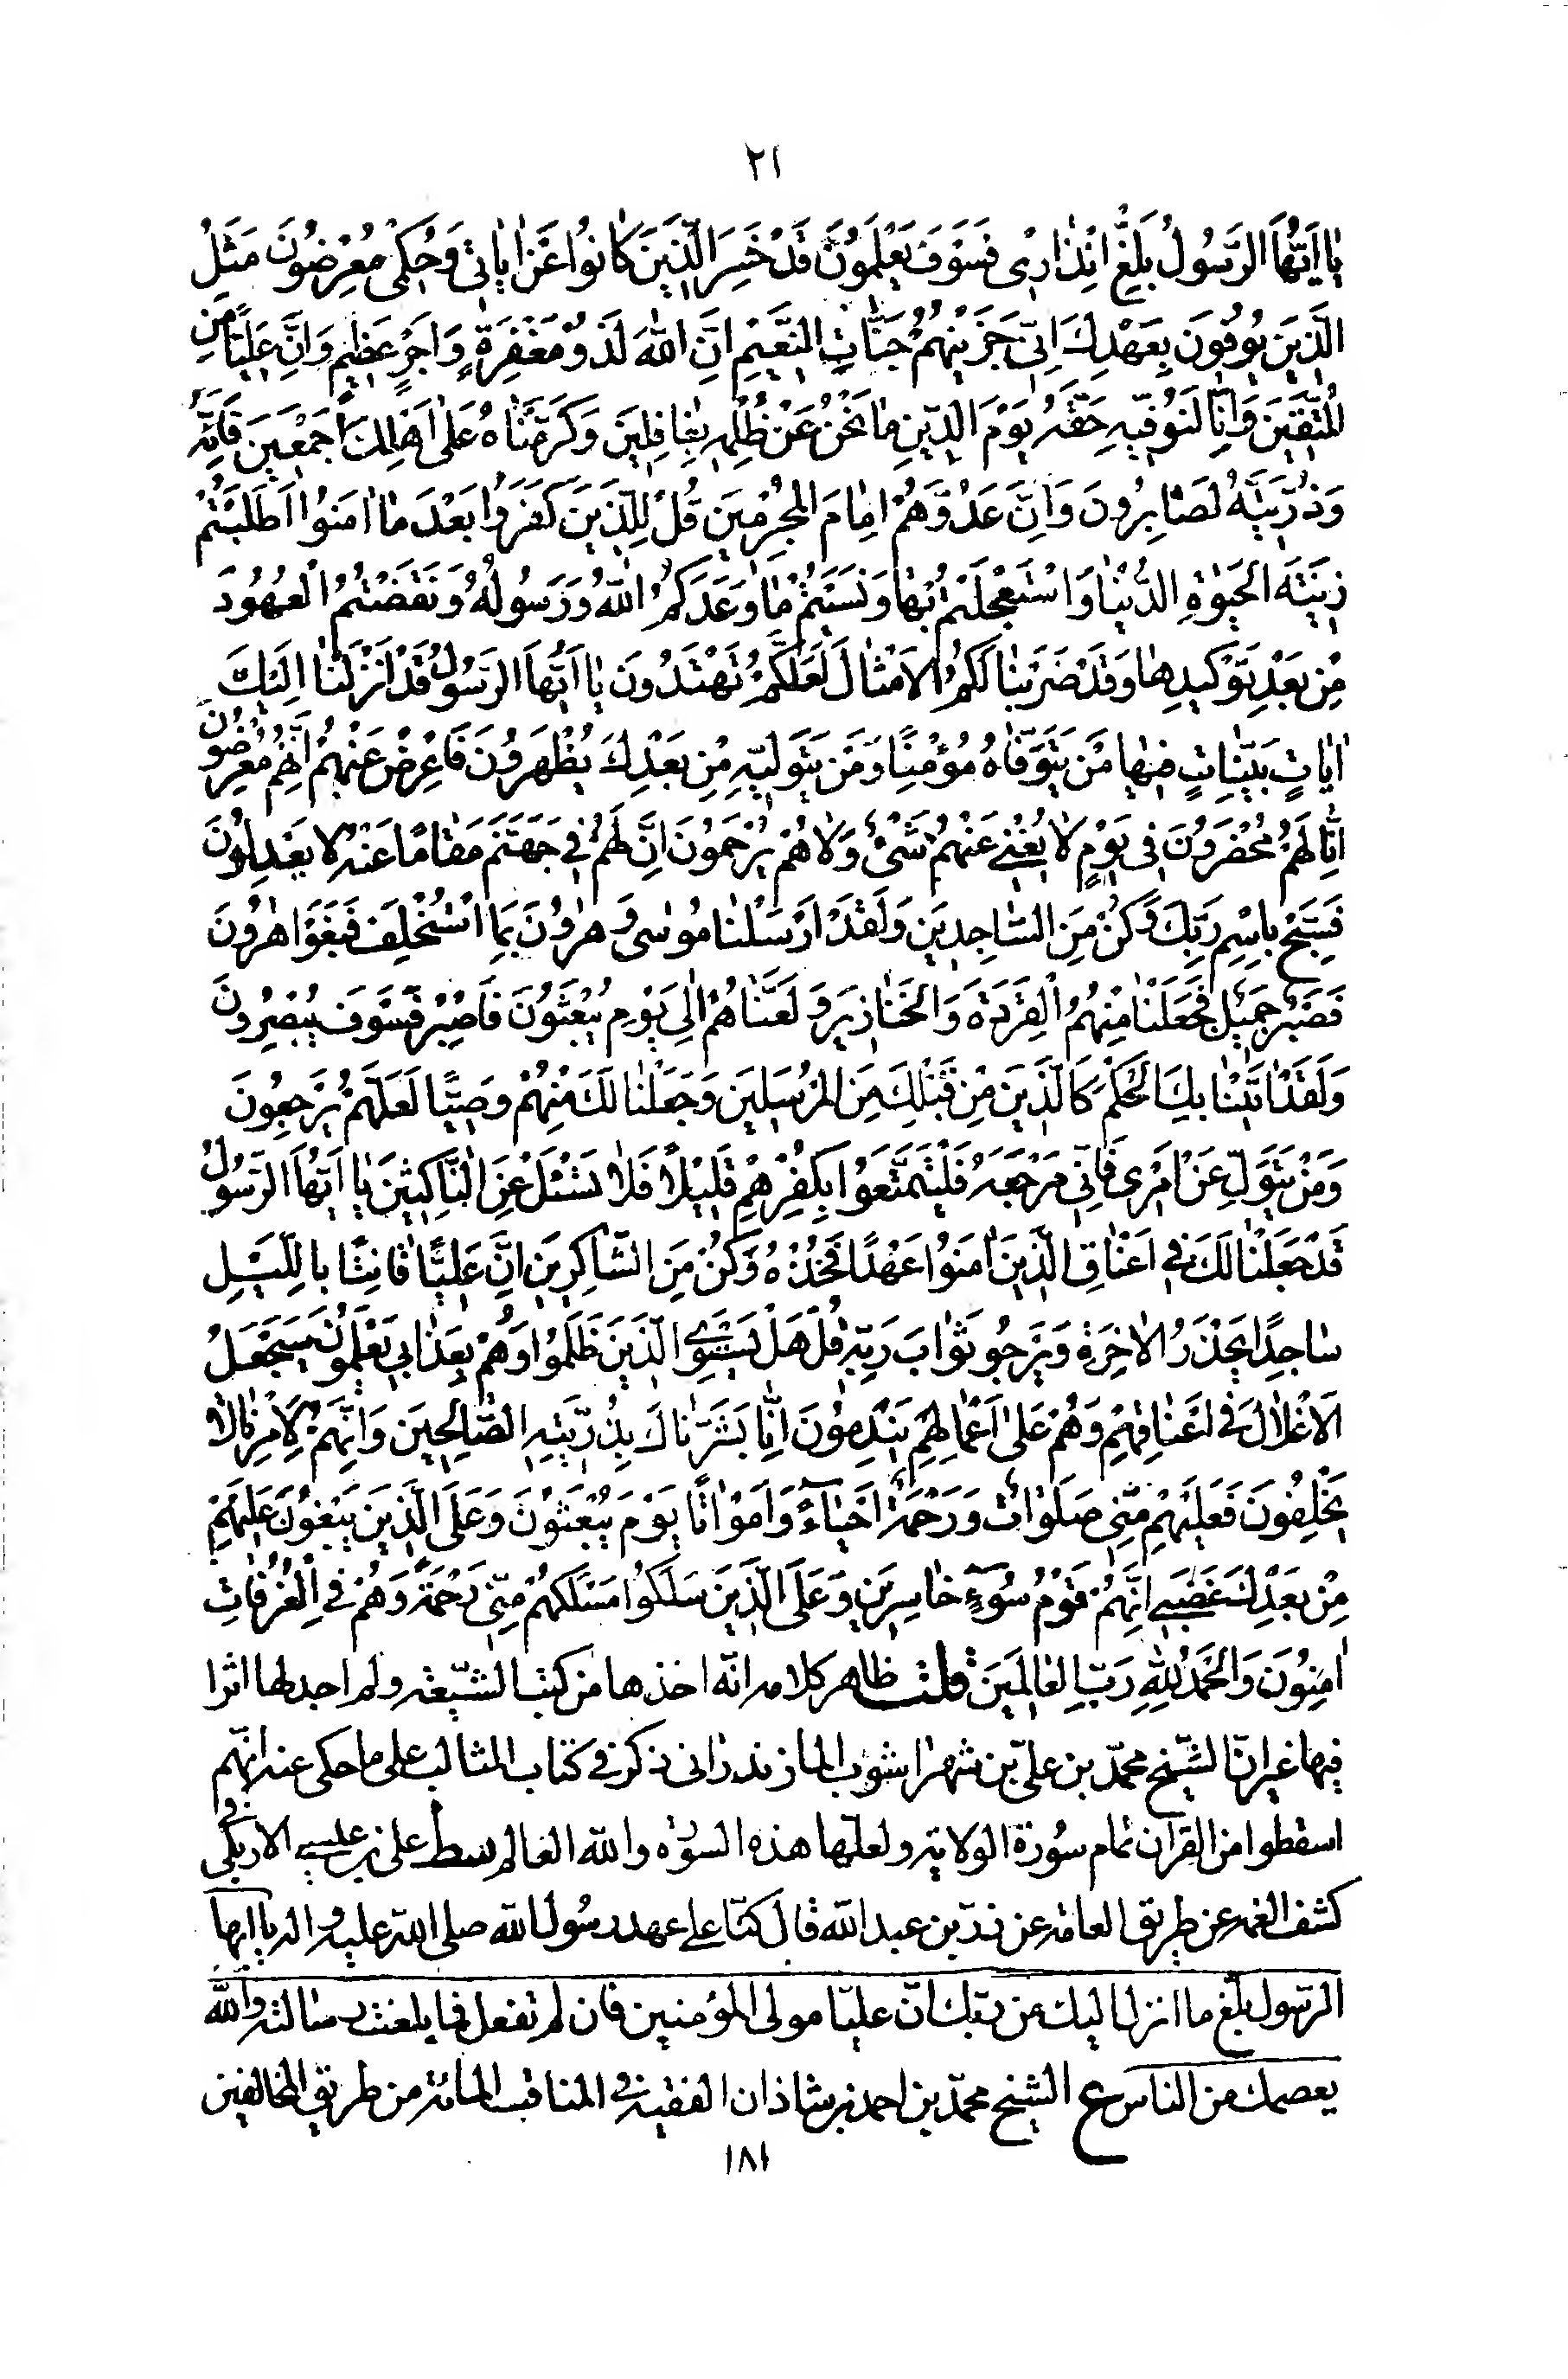 ٢١
يٰا اَيُّهَا الرَّسُولُ بَلِّغْ اِنْذٰارى فَسَوْفَ يَعْلَمُونَ قَدْ خَسِرَ الَّذِينَ كٰانُوا عَنْ اٰيٰاتى وَحُكْمى مُعْرِضُونَ مَثَلُ
الَّذِينَ يُوفُونَ بِعَهْدِكَ اِنّى جَزَيْتُهُمْ جَنّٰاتِ النَّعيمِ اِنَّ اللّٰهَ لَذُو مَغْفِرَةٍ وَاَجْرٍ عَظيمٍ وَاِنَّ عَلِيًّا مِنَ
الْمُتَّقينَ وَاِنّٰا لَنُوَفّيهِ حَقَّهُ يَوْمَ الدّينِ مٰا نَحْنُ عَنْ ظُلْمِهِ بِغٰافِلينَ وَكَرَّمْنٰاهُ عَلىٰ اَهْلِكَ اَجْمَعينَ فَاِنَّهُ
وَذُرِّيَّتَهُ لَصٰابِرُونَ وَاِنَّ عَدُوَّهُمْ اِمٰامَ الْمُجْرِمينَ قُلْ لِلَّذينَ كَفَرُوا بَعْدَ مٰا اٰمَنُوا اَطَلَبْتُمْ
زينَةَ الْحَيٰوةِ الدُّنْيٰا وَاسْتَعْجَلْتُمْ بِهٰا وَنَسيتُمْ مٰا وَعَدَكُمُ اللّٰهُ وَرَسُولُهُ وَنَقَضْتُمُ الْعُهُودَ
مِنْ بَعْدِ تَوْكيدِهٰا وَقَدْ ضَرَبْنٰا لَكُمُ الْاَمْثٰالَ لَعَلَّكُمْ تَهْتَدُونَ يٰا اَيُّهَا الرَّسُولُ قَدْ اَنْزَلْنٰا اِلَيْكَ
اٰيٰاتٍ بَيِّنٰاتٍ فيهٰا مَنْ يَتَوَفّٰاهُ مُؤْمِنًا وَمَنْ يَتَوَلّيهِ مِنْ بَعْدِكَ يُظْهَرُونَ فَاَعْرِضْ عَنْهُمْ اِنَّهُمْ مُعْرِضُونَ
اِنّٰا لَهُمْ مُحْضَرُونَ فى يَوْمٍ لٰا يُغْنى عَنْهُمْ شَىْءٌ وَلٰا هُمْ يُرْحَمُونَ اِنَّ لَهُمْ فى جَهَنَّمَ مَقٰامًا عَنْهُ لٰا يَعْدِلُونَ
فَسَبِّحْ بِاسْمِ رَبِّكَ وَكُنْ مِنَ السّٰاجِدينَ وَلَقَدْ اَرْسَلْنٰا مُوسٰى وَهٰرُونَ بِمَا اسْتُخْلِفَ فَبَغَوْا هٰرُونَ
فَصَبْرٌ جَميلٌ فَجَعَلْنٰا مِنْهُمُ الْقِرَدَةَ وَالْخَنٰازيرَ وَلَعَنّٰاهُمْ اِلىٰ يَوْمِ يُبْعَثُونَ فَاصْبِرْ فَسَوْفَ يُبْصِرُونَ
وَلَقَدْ اٰتَيْنٰا بِكَ الْحُكْمَ كَالَّذينَ مِنْ قَبْلِكَ مِنَ الْمُرْسَلينَ وَجَعَلْنٰا لَكَ مِنْهُمْ وَصِيًّا لَعَلَّهُمْ يَرْجِعُونَ
وَمَنْ يَتَوَلَّ عَنْ اَمْرى فَاِنّى مَرْجَعُهُ فَلْيَتَمَتَّعُوا بِكُفْرِهِمْ قَليلًا فَلٰا تَسْئَلْ عَنِ النّٰاكِثينَ يٰا اَيُّهَا الرَّسُولُ
قَدْ جَعَلْنٰا لَكَ فى اَعْنٰاقِ الَّذينَ اٰمَنُوا عَهْدًا فَخُذْهُ وَكُنْ مِنَ الشّٰاكِرينَ اِنَّ عَلِيًّا قٰانِتًا بِاللَّيْلِ
سٰاجِدًا يَحْذَرُ الْاٰخِرَةَ وَيَرْجُو ثَوٰابَ رَبِّهِ قُلْ هَلْ يَسْتَوِى الَّذينَ ظَلَمُوا وَهُمْ بِعَذٰابى يَعْلَمُونَ سَيَجْعَلُ
الْاَغْلٰالَ فى اَعْنٰاقِهِمْ وَهُمْ عَلىٰ اَعْمٰالِهِمْ يَنْدِمُونَ اِنّٰا بَشَّرْنٰاكَ بِذُرِّيَّتِهِ الصّٰالِحينَ وَاِنَّهُمْ لِاَمْرِنٰا لٰا
يَخْلِفُونَ فَعَلَيْهِمْ مِنّى صَلَوٰاتٌ وَرَحْمَةٌ اَحْيٰاءً وَاَمْوٰاتًا يَوْمَ يُبْعَثُونَ وَعَلَى الَّذينَ يَبْغُونَ عَلَيْهِمْ
مِنْ بَعْدِكَ غَضَبى اِنَّهُمْ قَوْمُ سُوءٍ خٰاسِرينَ وَعَلَى الَّذينَ سَلَكُوا مَسْلَكَهُمْ مِنّى رَحْمَةٌ وَهُمْ فِى الْغُرُفٰاتِ
اٰمِنُونَ وَالْحَمْدُ لِلّٰهِ رَبِّ الْعٰالَمينَ قلت ظاهر كلامه انّه اخذها من كتب الشّيعة ولم اجد لها اثرا
فيها غير انّ الشّيخ محمّد بن علىّ بن شهراشوب المازندرانى ذكر فى كتاب المثالب على ما حكى عنه انّهم
اسقطوا من القرآن تمام سُورة الولاية ولعلّها هذه السورة والله العالم سط على بن عيسى الاربلى فى
كشف الغمه عن طريق العامة عن زرّ بن عبد الله قال كنّا على عهد رسُول الله صلى الله عليه واله يا ايها
الرّسول بلّغ ما انزل اليك من ربّك انّ عليّا مولى المؤمنين فان لم تفعل فما بلغت رسالته والله
يعصمك من الناس ع الشيخ محمّد بن احمد بن شاذان الفقيه فى المناقب المائة من طريق المخالفين
١٨١